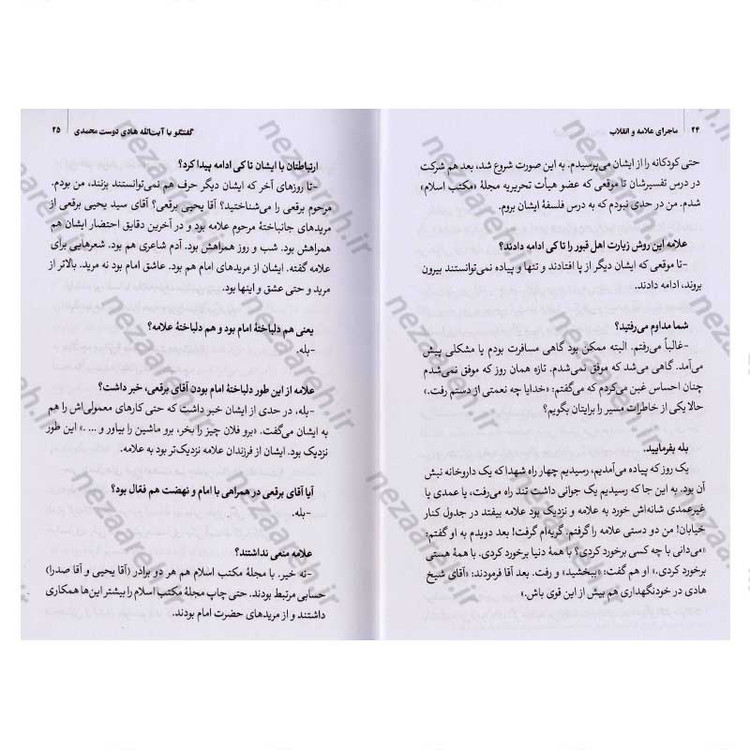 ۲۴ | ماجرای علامه و انقلاب
حتی کودکانه را از ایشان می‌پرسیدم. به این صورت شروع شد، بعد هم شرکت
در درس تفسیرشان تا موقعی که عضو هیأت تحریریه مجلهٔ «مکتب اسلام»
شدم. من در حدی نبودم که به درس فلسفهٔ ایشان بروم.
علامه این روش زیارت اهل قبور را تا کی ادامه دادند؟
-تا موقعی که ایشان دیگر از پا افتادند و تنها و پیاده نمی‌توانستند بیرون
بروند، ادامه دادند.
شما مداوم می‌رفتید؟
-غالباً می‌رفتم. البته ممکن بود گاهی مسافرت بودم یا مشکلی پیش
می‌آمد. گاهی می‌شد که موفق نمی‌شدم. تازه همان روز که موفق نمی‌شدم
چنان احساس غبن می‌کردم که می‌گفتم: «خدایا چه نعمتی از دستم رفت.»
حالا یکی از خاطرات مسیر را برایتان بگویم؟
بله بفرمایید.
یک روز که پیاده می‌آمدیم، رسیدیم چهار راه شهدا که یک داروخانه نبش
آن بود. به این جا که رسیدیم یک جوانی داشت تند راه می‌رفت، یا عمدی یا
غیرعمدی شانه‌اش خورد به علامه و نزدیک بود علامه بیفتد در جدول کنار
خیابان! من دو دستی علامه را گرفتم. گریه‌ام گرفت! بعد دویدم به او گفتم:
«می‌دانی با چه کسی برخورد کردی؟ با همهٔ دنیا برخورد کردی. با همهٔ هستی
برخورد کردی.» او هم گفت: «ببخشید» و رفت. بعد آقا فرمودند: «آقای شیخ
هادی در خودنگهداری هم بیش از این قوی باش.»
گفتگو با آیت‌الله هادی دوست محمدی | ۲۵
ارتباطتان با ایشان تا کی ادامه پیدا کرد؟
-تا روزهای آخر که ایشان دیگر حرف هم نمی‌توانستند بزنند، من بودم.
مرحوم برقعی را می‌شناختید؟ آقا یحیی برقعی؟ آقای سید یحیی برقعی از
مریدهای جانباختهٔ مرحوم علامه بود و در آخرین دقایق احتضار ایشان هم
همراهش بود. شب و روز همراهش بود. آدم شاعری هم بود. شعرهایی برای
علامه گفته. ایشان از مریدهای امام هم بود. عاشق امام بود نه مرید. بالاتر از
مرید و حتی عشق و اینها بود.
یعنی هم دلباختهٔ امام بود و هم دلباختهٔ علامه؟
-بله.
علامه از این طور دلباختهٔ امام بودن آقای برقعی، خبر داشت؟
-بله، در حدی از ایشان خبر داشت که حتی کارهای معمولی‌اش را هم
به ایشان می‌گفت. «برو فلان چیز را بخر، برو ماشین را بیاور و ... .» این طور
نزدیک بود. ایشان از فرزندان علامه نزدیک‌تر بود به علامه.
آیا آقای برقعی در همراهی با امام و نهضت هم فعّال بود؟
-بله.
علامه منعی نداشتند؟
-نه خیر. با مجلهٔ مکتب اسلام هم هر دو برادر (آقا یحیی و آقا صدرا)
حسابی مرتبط بودند. حتی چاپ مجلهٔ مکتب اسلام را بیشتر این‌ها همکاری
داشتند و از مریدهای حضرت امام بودند.
nezaareh.ir
nezaareh.ir
nezaareh.ir
nezaareh.ir
nezaareh.ir
nezaareh.ir